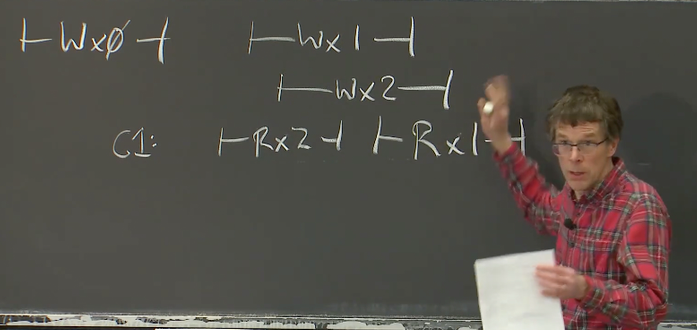 |-Wx0-| |-Wx1-|
|-Wx2-|
C1: |-Rx2-| |-Rx1-|